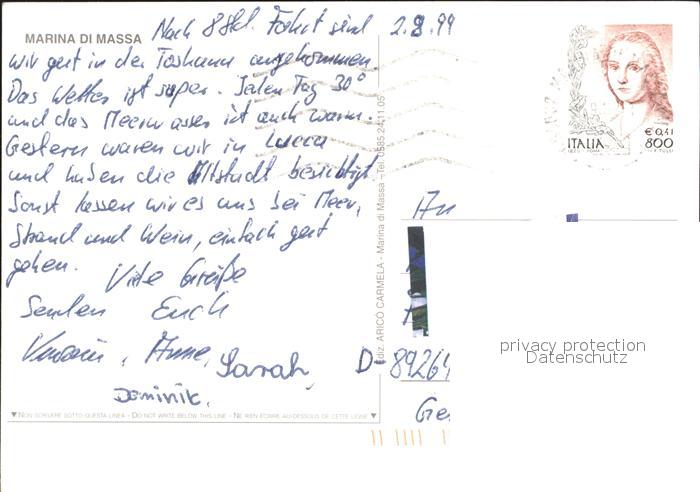 MARINA DI MASSA
Nach 8 Std. Fahrt sind
wir gut in der Toskana angekommen.
Das Wetter ist super. Jeden Tag 30°
und das Meerwasser ist auch warm.
Gestern waren wir in Lucca
und haben die Altstadt besichtigt.
Sonst lassen wir es uns bei Meer,
Strand und Wein, einfach gut
gehen. Viele Grüße
Senden Euch
Anne, Sarah,
Dominik.
▼ NON SCRIVERE SOTTO QUESTA LINEA - DO NOT WRITE BELOW THIS LINE - NE RIEN ÉCRIRE AU-DESSOUS DE CETTE LIGNE ▼
Ediz. ARICÒ CARMELA - Marina di Massa - Tel. 0585.24.11.05
2.8.99
ITALIA
€ 0,41
800
An
D-89264
privacy protection
Datenschutz